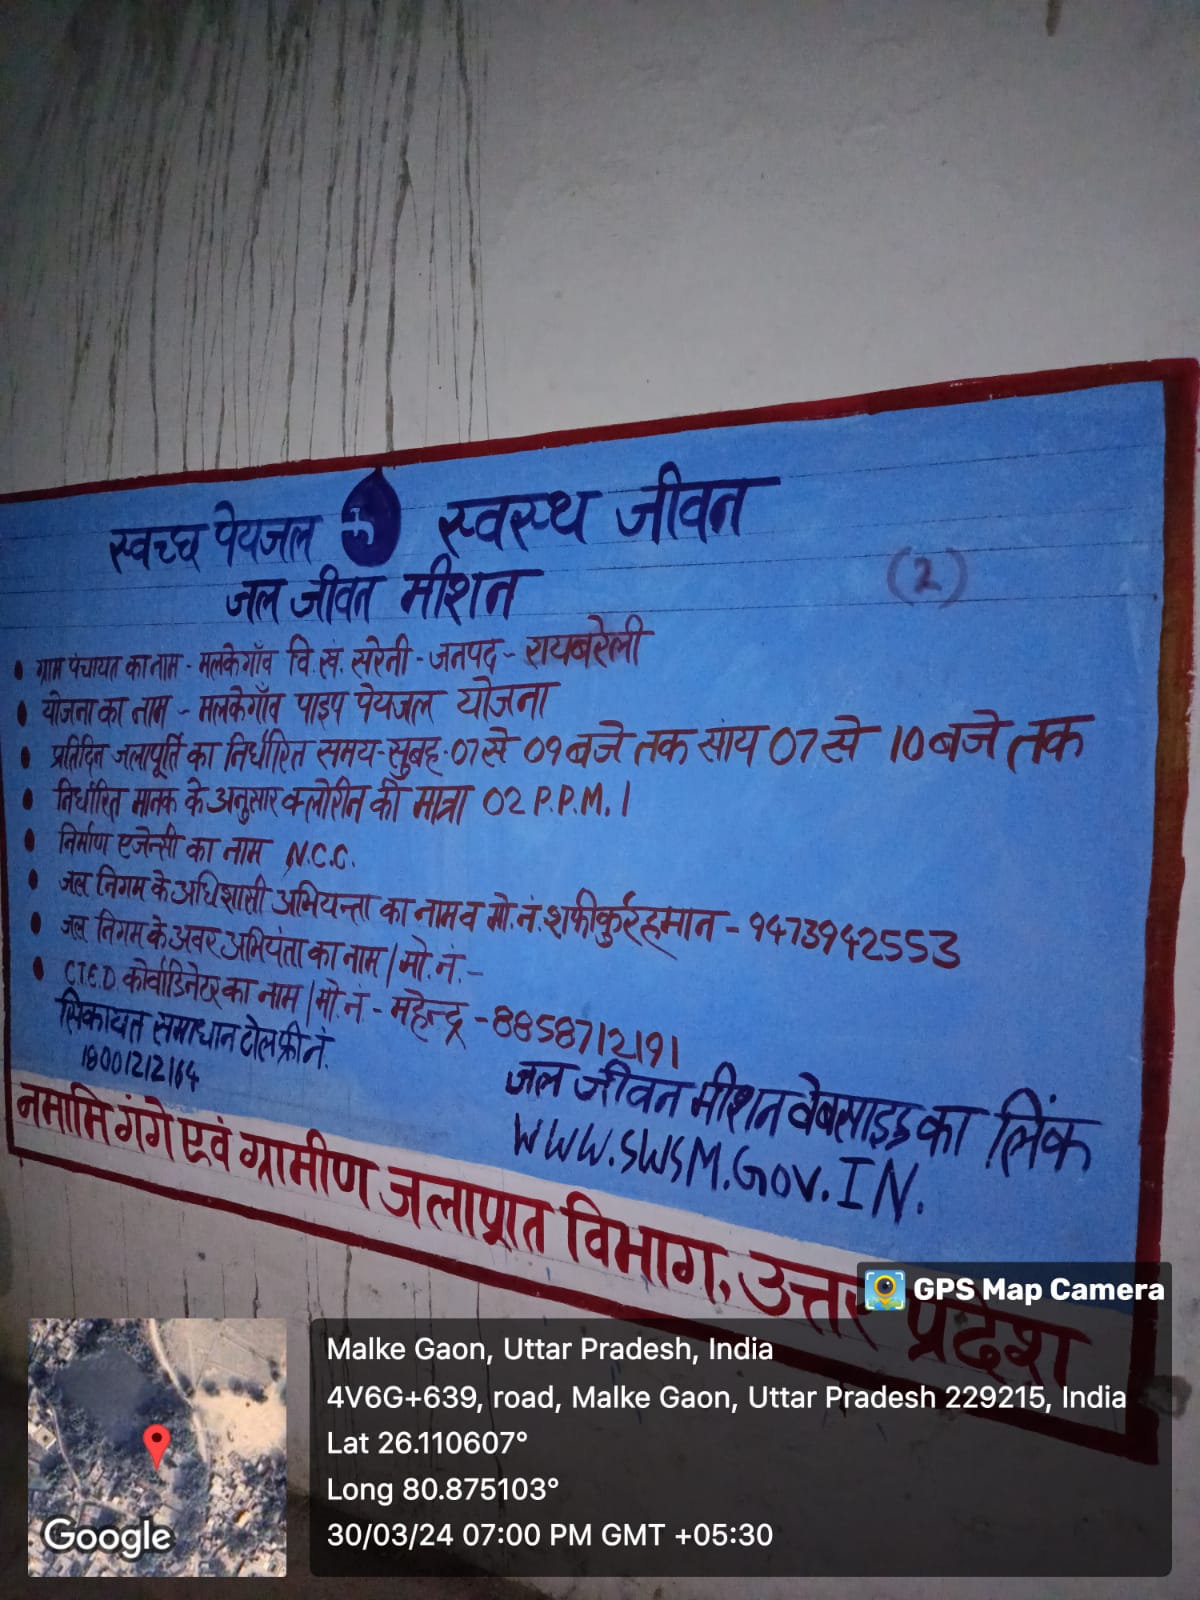 स्वच्छ पेयजल स्वस्थ जीवन
जल जीवन मीशन
(2)
• ग्राम पंचायत का नाम - मलकेगाँव वि.खं. सरेनी - जनपद - रायबरेली
• योजना का नाम - मलकेगाँव पाइप पेयजल योजना
• प्रतिदिन जलापूर्ति का निर्धारित समय-सुबह-07 से 09 बजे तक सांय 07 से 10 बजे तक
• निर्धारित मानक के अनुसार क्लोरीन की मात्रा 02 P.P.M.।
• निर्माण एजेन्सी का नाम N.C.C.
• जल निगम के अधिशासी अभियन्ता का नाम व मो.नं. शफीकुर्रहमान - 9473942553
• जल निगम के अवर अभियंता का नाम / मो.नं.-
• C.T.E.D. कोर्वाडिनेटर का नाम / मो.नं - महेन्द्र - 8858712191
सिकायत समाधान टोल फ्री नं.
18001212164
जल जीवन मीशन वेबसाइड का लिंक
WWW.SWSM.GOV.IN.
नमामि गंगे एवं ग्रामीण जलाप्रात विभाग, उत्तर प्रदेश
GPS Map Camera
Malke Gaon, Uttar Pradesh, India
4V6G+639, road, Malke Gaon, Uttar Pradesh 229215, India
Lat 26.110607°
Long 80.875103°
30/03/24 07:00 PM GMT +05:30
Google